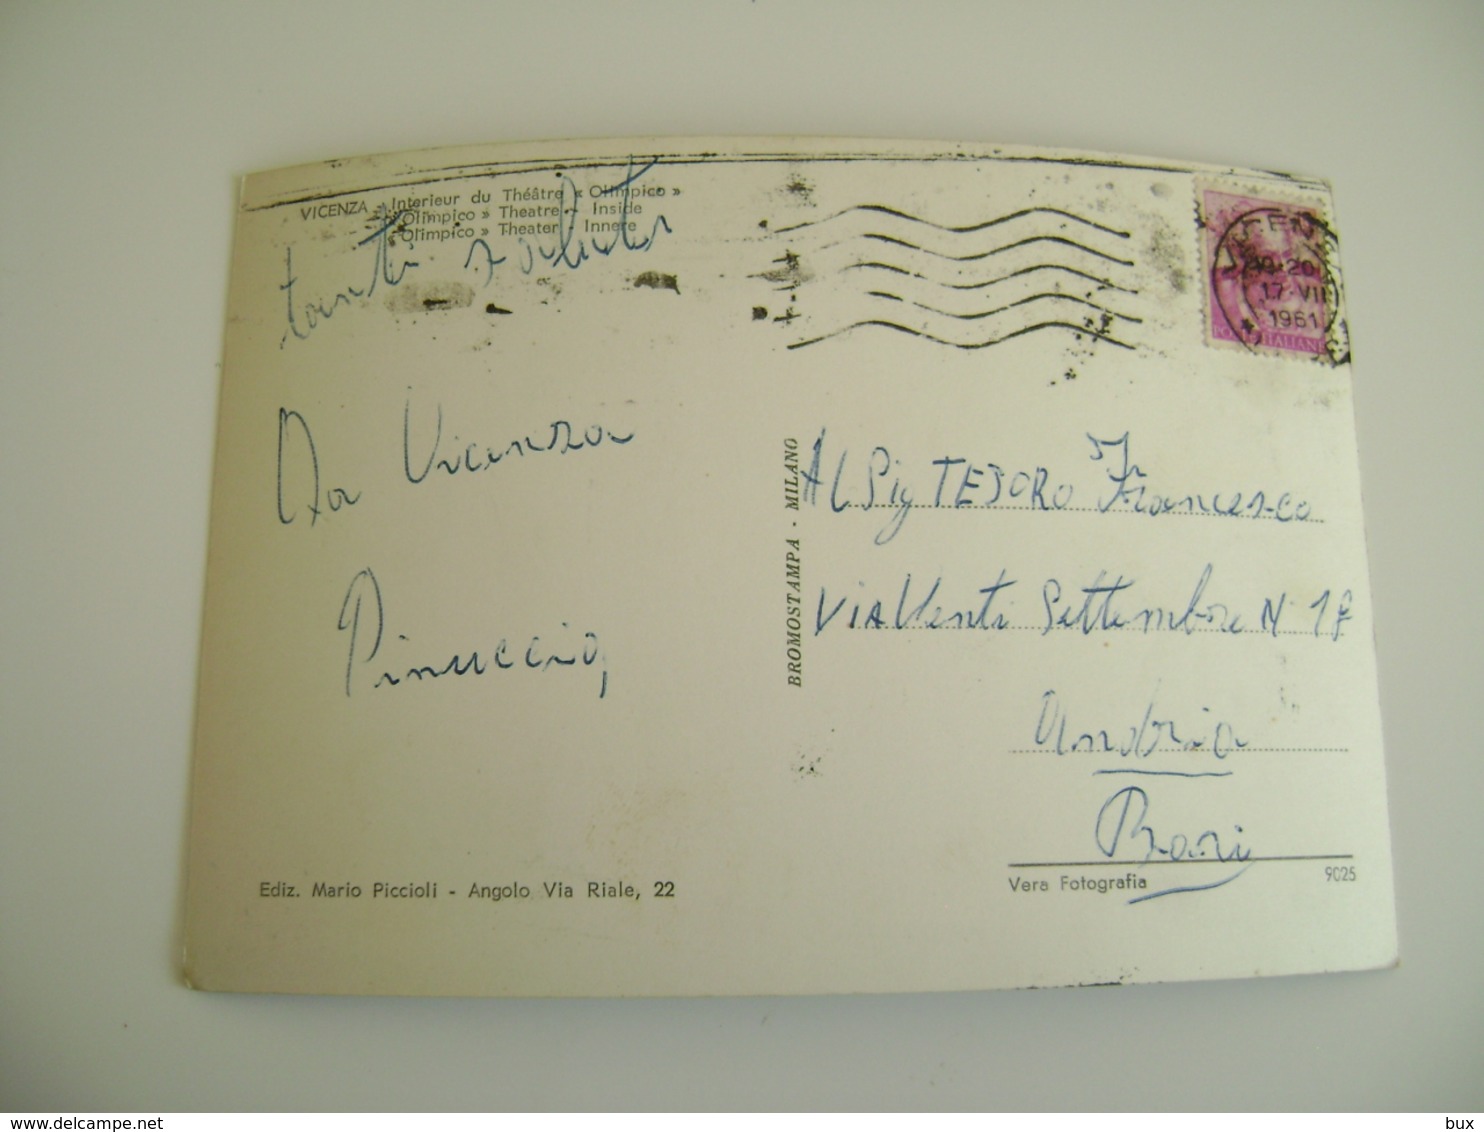 VICENZA - Interieur du Théâtre « Olimpico »
« Olimpico » Theatre - Inside
« Olimpico » Theater - Innere
tanti saluti
Da Vicenza
Pinuccio
Ediz. Mario Piccioli - Angolo Via Riale, 22
BROMOSTAMPA - MILANO
17·VII
1961
POSTE ITALIANE
AL Sig TESORO Francesco
VIA Venti Settembre N
Andria
Bari
Vera Fotografia
9025
delcampe.net
bux